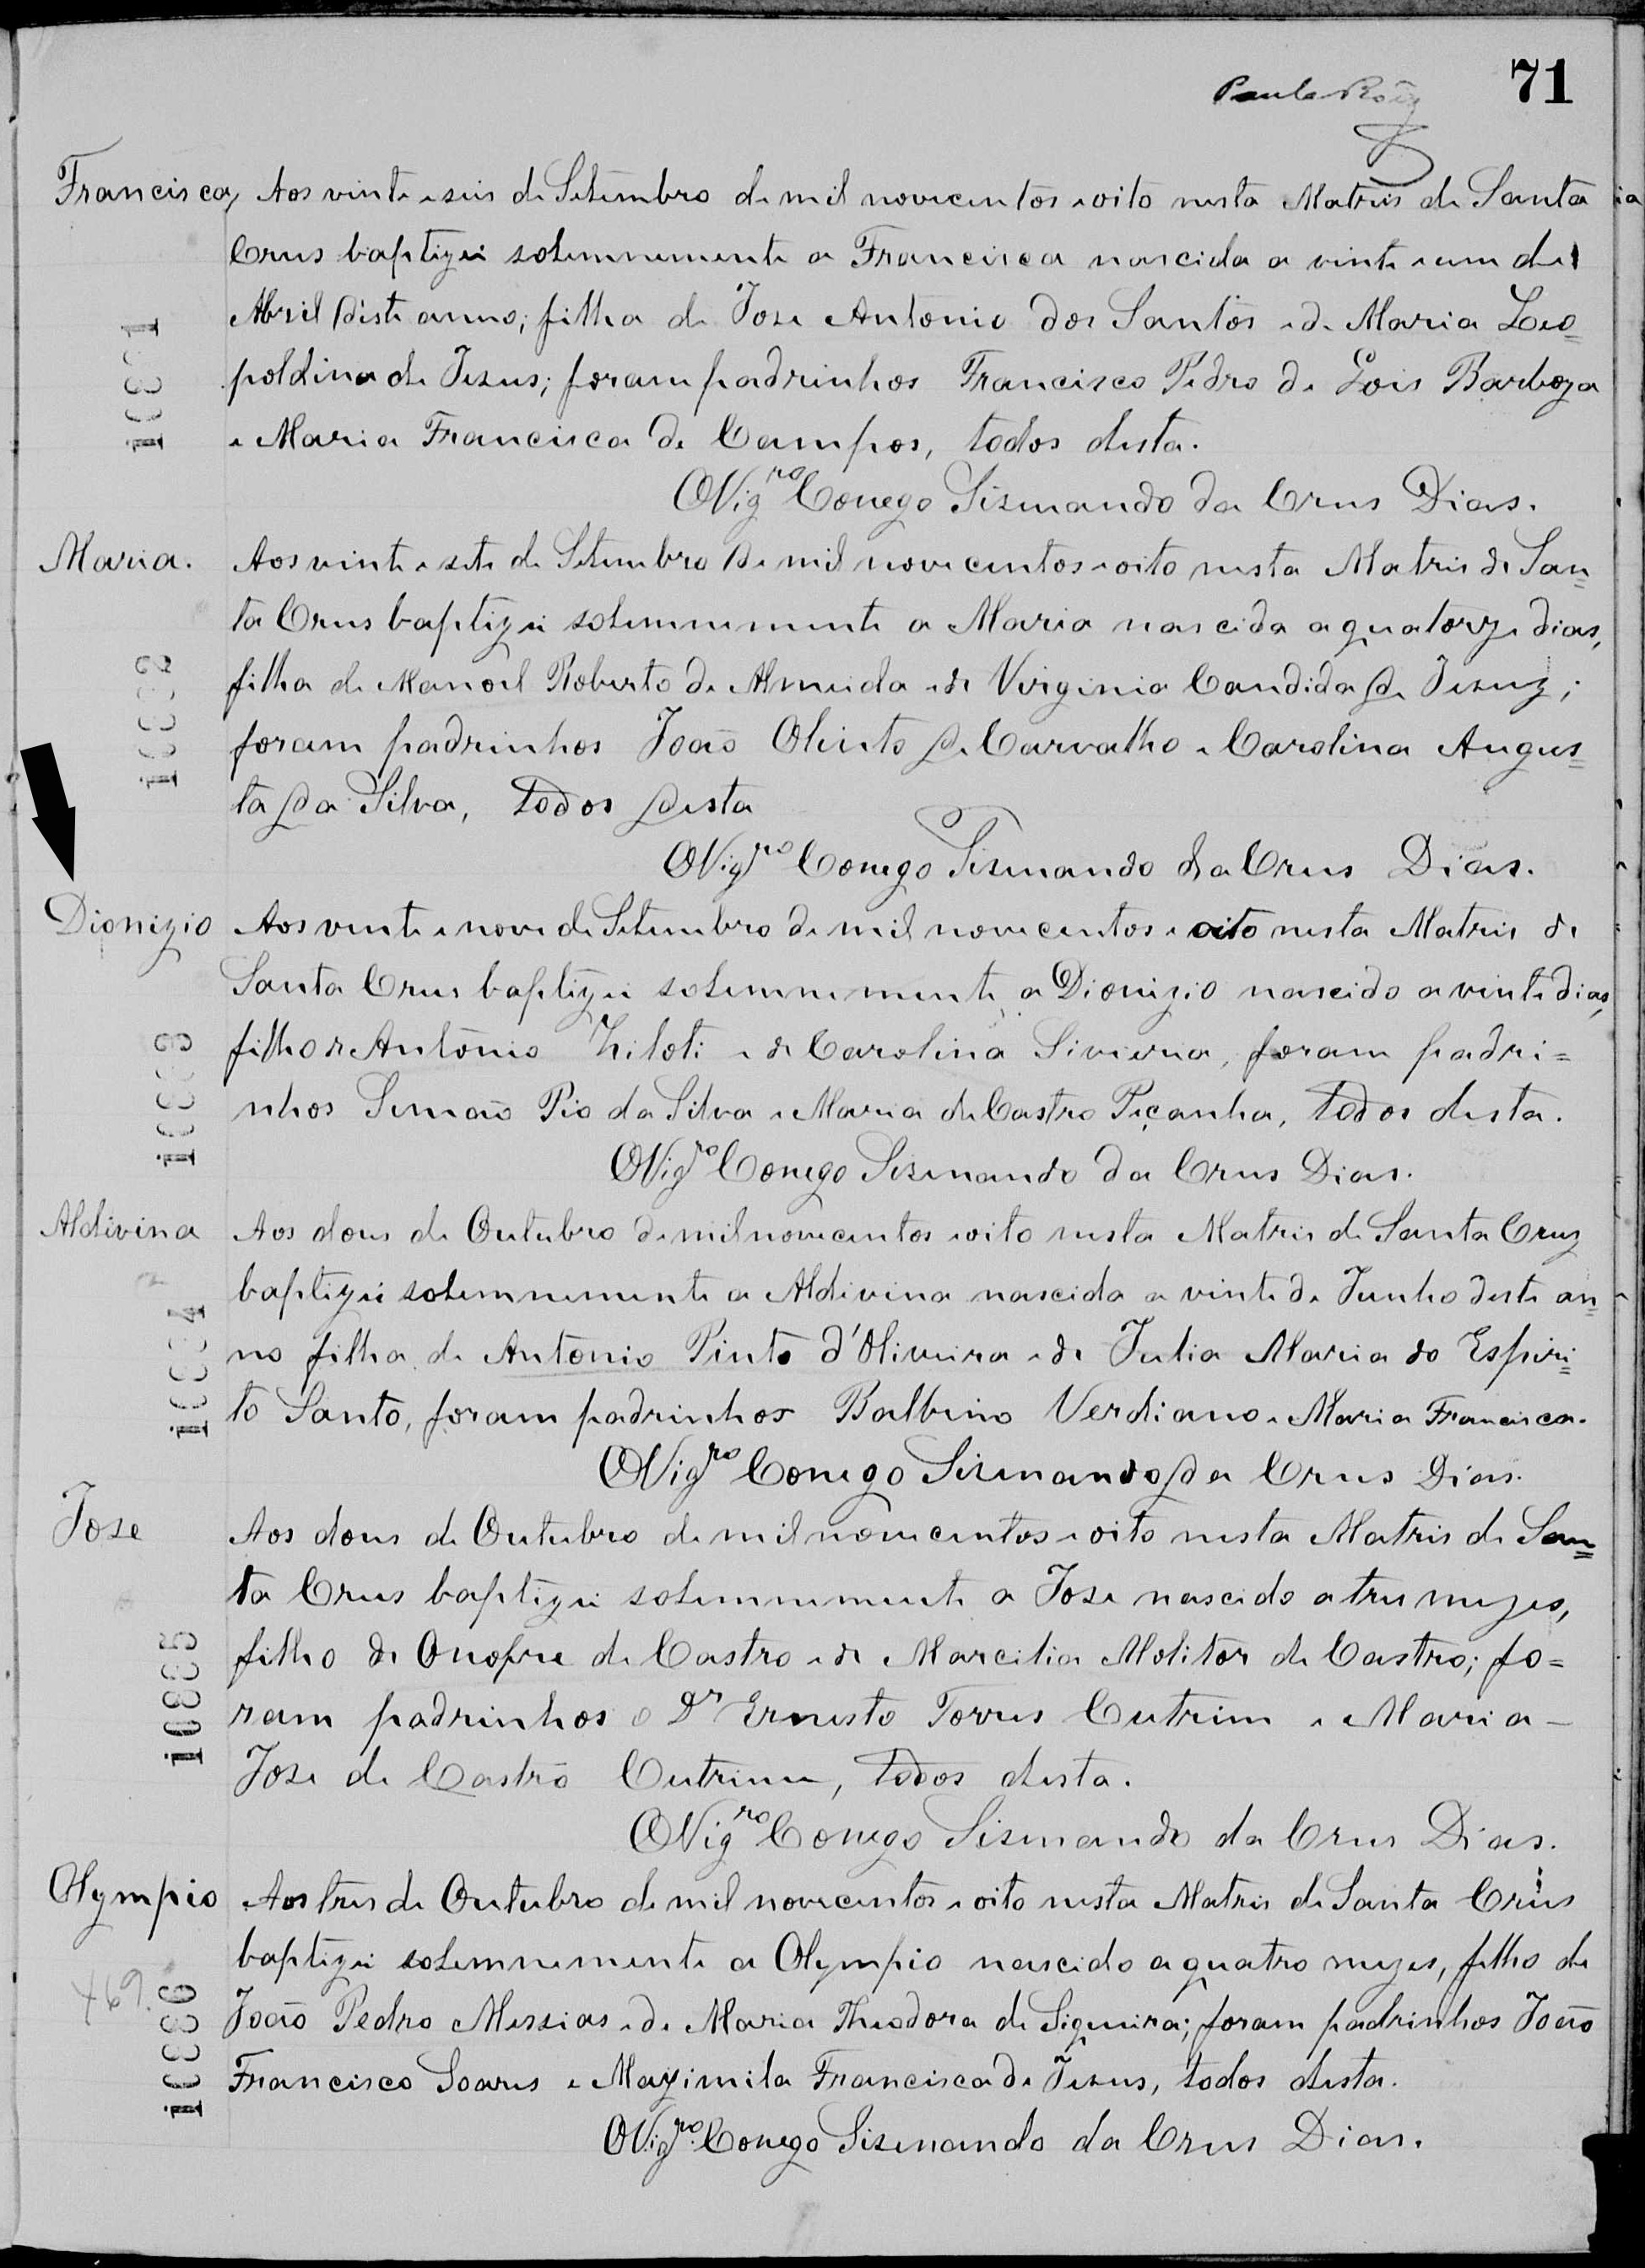 71
Francisca, Aos vinte e seis de Setembro de mil novecentos e oito nesta Matris de Santa
Crus baptizei solemnemente a Francisca nascida a vinte e um de
Abril deste anno; filha de Jose Antonio dos Santos e de Maria Leo=
poldina de Jesus; foram padrinhos Francisco Pedro de Gois Barboza
e Maria Francisca de Campos, todos desta.
O Vigro Conego Sisenando da Crus Dias.
10881
Maria. Aos vinte e sete de Setembro de mil novecentos e oito nesta Matris de San=
ta Crus baptizei solemnemente a Maria nascida a quatorze dias,
filha de Manoel Roberto de Almeida e de Virginia Candida de Jesuz;
foram padrinhos João Olinto de Carvalho e Carolina Augus=
ta da Silva, todos desta
O Vigro Conego Sisenando da Crus Dias.
10882
Dionizio Aos vinte e nove de Setembro de mil novecentos e oito nesta Matris de
Santa Crus baptizei solemnemente a Dionizio nascido a vinte dias,
filho de Antonio Ziloti e de Carolina Siviera, foram padri=
nhos Simão Pio da Silva e Maria de Castro Peçanha, todos desta.
O Vigro Conego Sisenando da Crus Dias.
10883
Aldivina Aos dous de Outubro de mil novecentos e oito nesta Matris de Santa Cruz
baptizei solemnemente a Aldivina nascida a vinte de Junho deste an=
no filha de Antonio Pinto d'Oliveira e de Julia Maria do Espiri=
to Santo, foram padrinhos Balbino Verdiano e Maria Francisca.
O Vigro Conego Sisenando da Crus Dias.
10884
Jose Aos dous de Outubro de mil novecentos e oito nesta Matris de San=
ta Crus baptizei solemnemente a Jose nascido a tres mezes,
filho de Onofre de Castro e de Marcilia Molitor de Castro; fo=
ram padrinhos o Dr Ernesto Torres Cutrim e Maria —
Jose de Castro Cutrim, todos desta.
O Vigro Conego Sisenando da Crus Dias.
10885
Olympio Aos tres de Outubro de mil novecentos e oito nesta Matris de Santa Crus
baptizei solemnemente a Olympio nascido a quatro mezes, filho de
João Pedro Messias e de Maria Theodora de Siqueira; foram padrinhos João
Francisco Soares e Maximila Francisca de Jesus, todos desta.
O Vigro Conego Sisenando da Crus Dias.
469.
10886